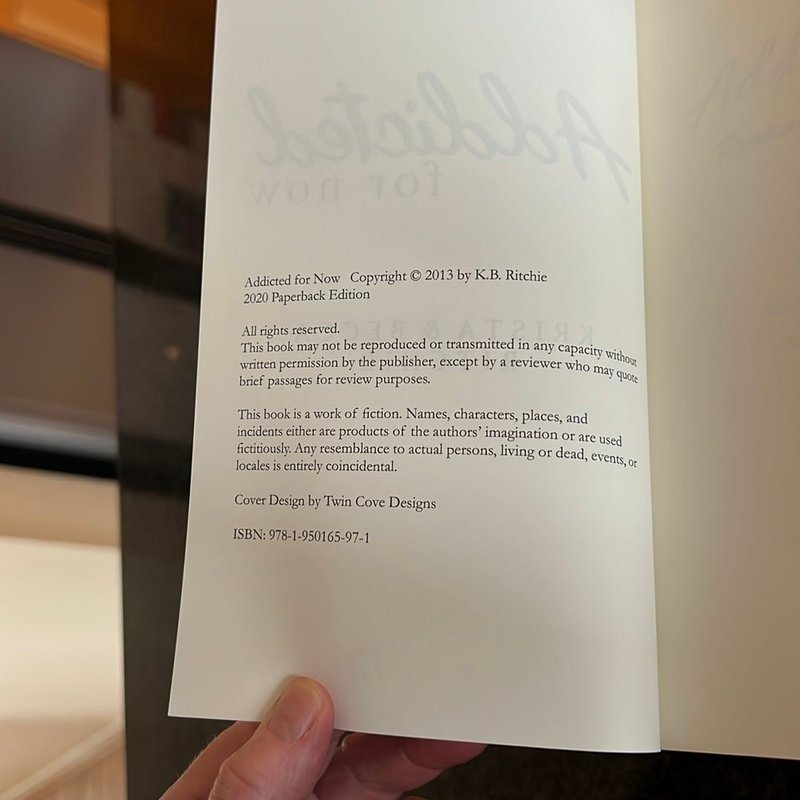 Addicted
for now
Addicted for Now Copyright © 2013 by K.B. Ritchie
2020 Paperback Edition
KRISTA & BEC
All rights reserved.
This book may not be reproduced or transmitted in any capacity without
written permission by the publisher, except by a reviewer who may quote
brief passages for review purposes.
This book is a work of fiction. Names, characters, places, and
incidents either are products of the authors' imagination or are used
fictitiously. Any resemblance to actual persons, living or dead, events, or
locales is entirely coincidental.
Cover Design by Twin Cove Designs
ISBN: 978-1-950165-97-1